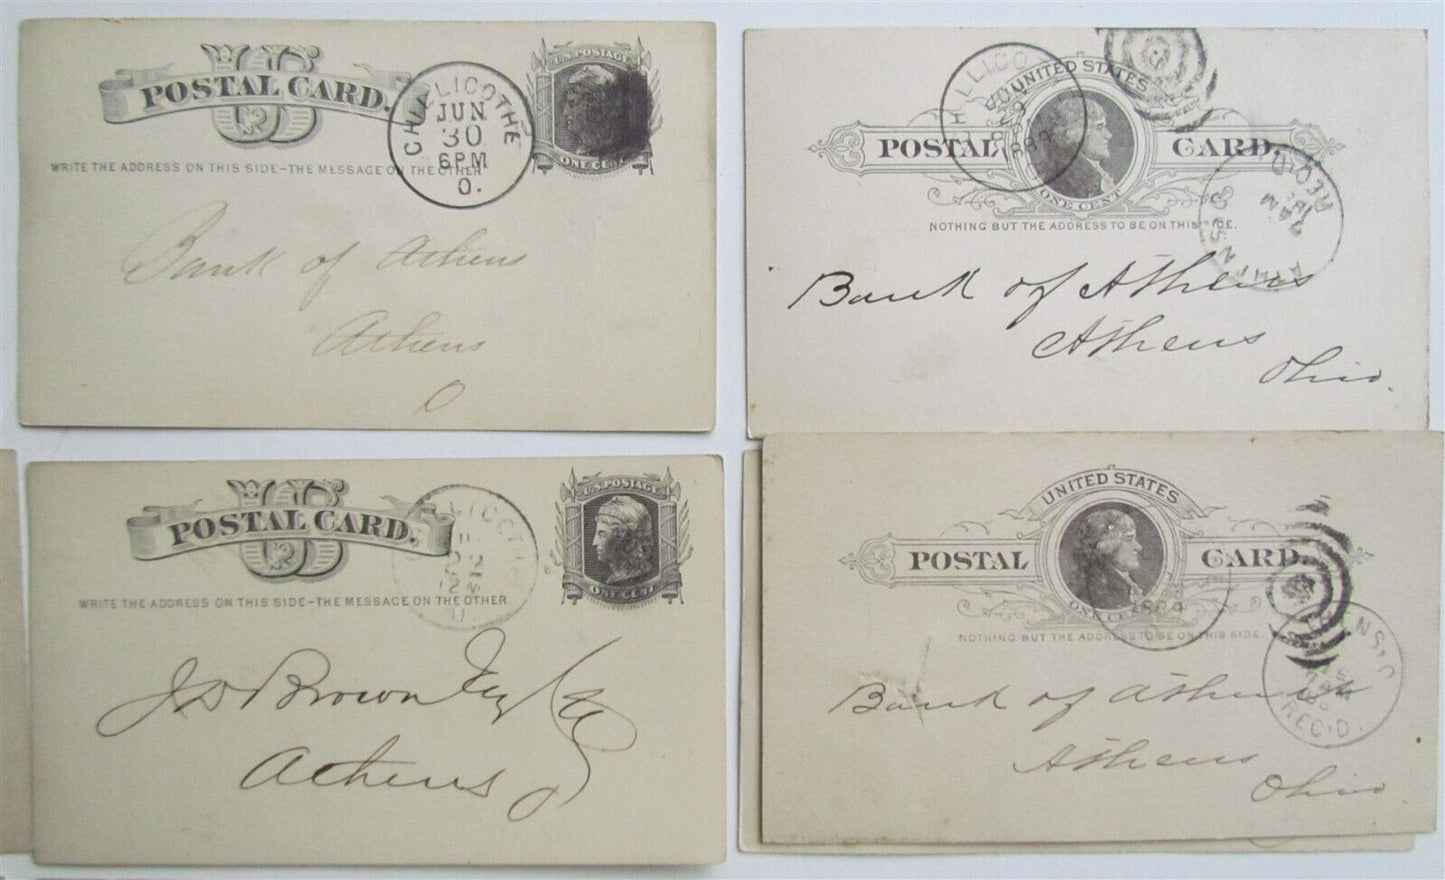 US
POSTAL CARD.
CHILLICOTHE
JUN
30
6PM
O.
U.S. POSTAGE
ONE CENT
WRITE THE ADDRESS ON THIS SIDE-THE MESSAGE ON THE OTHER
Bank of Athens
Athens
O
UNITED STATES
POSTAL CARD.
ONE CENT
NOTHING BUT THE ADDRESS TO BE ON THIS SIDE.
REC'D
7 AM
Bank of Athens
Athens
Ohio.
US
POSTAL CARD.
U.S. POSTAGE
ONE CENT
WRITE THE ADDRESS ON THIS SIDE-THE MESSAGE ON THE OTHER
J D Brown
Athens O
UNITED STATES
POSTAL CARD.
ONE CENT
1884
NOTHING BUT THE ADDRESS TO BE ON THIS SIDE.
ATHENS, O
REC'D.
Bank of Athens
Athens
Ohio